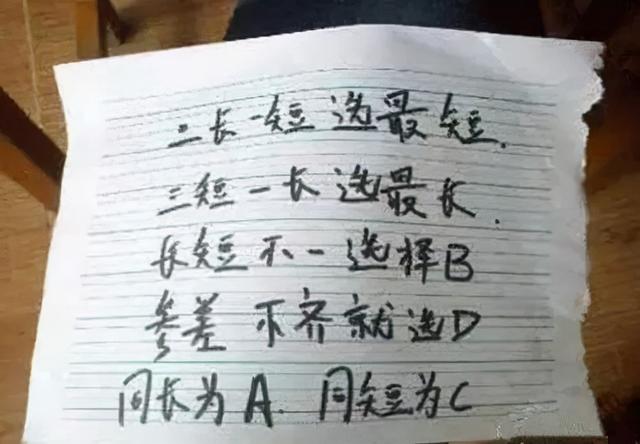 三长一短选最短.
三短一长选最长.
长短不一选择B
参差不齐就选D
同长为A.同短为C